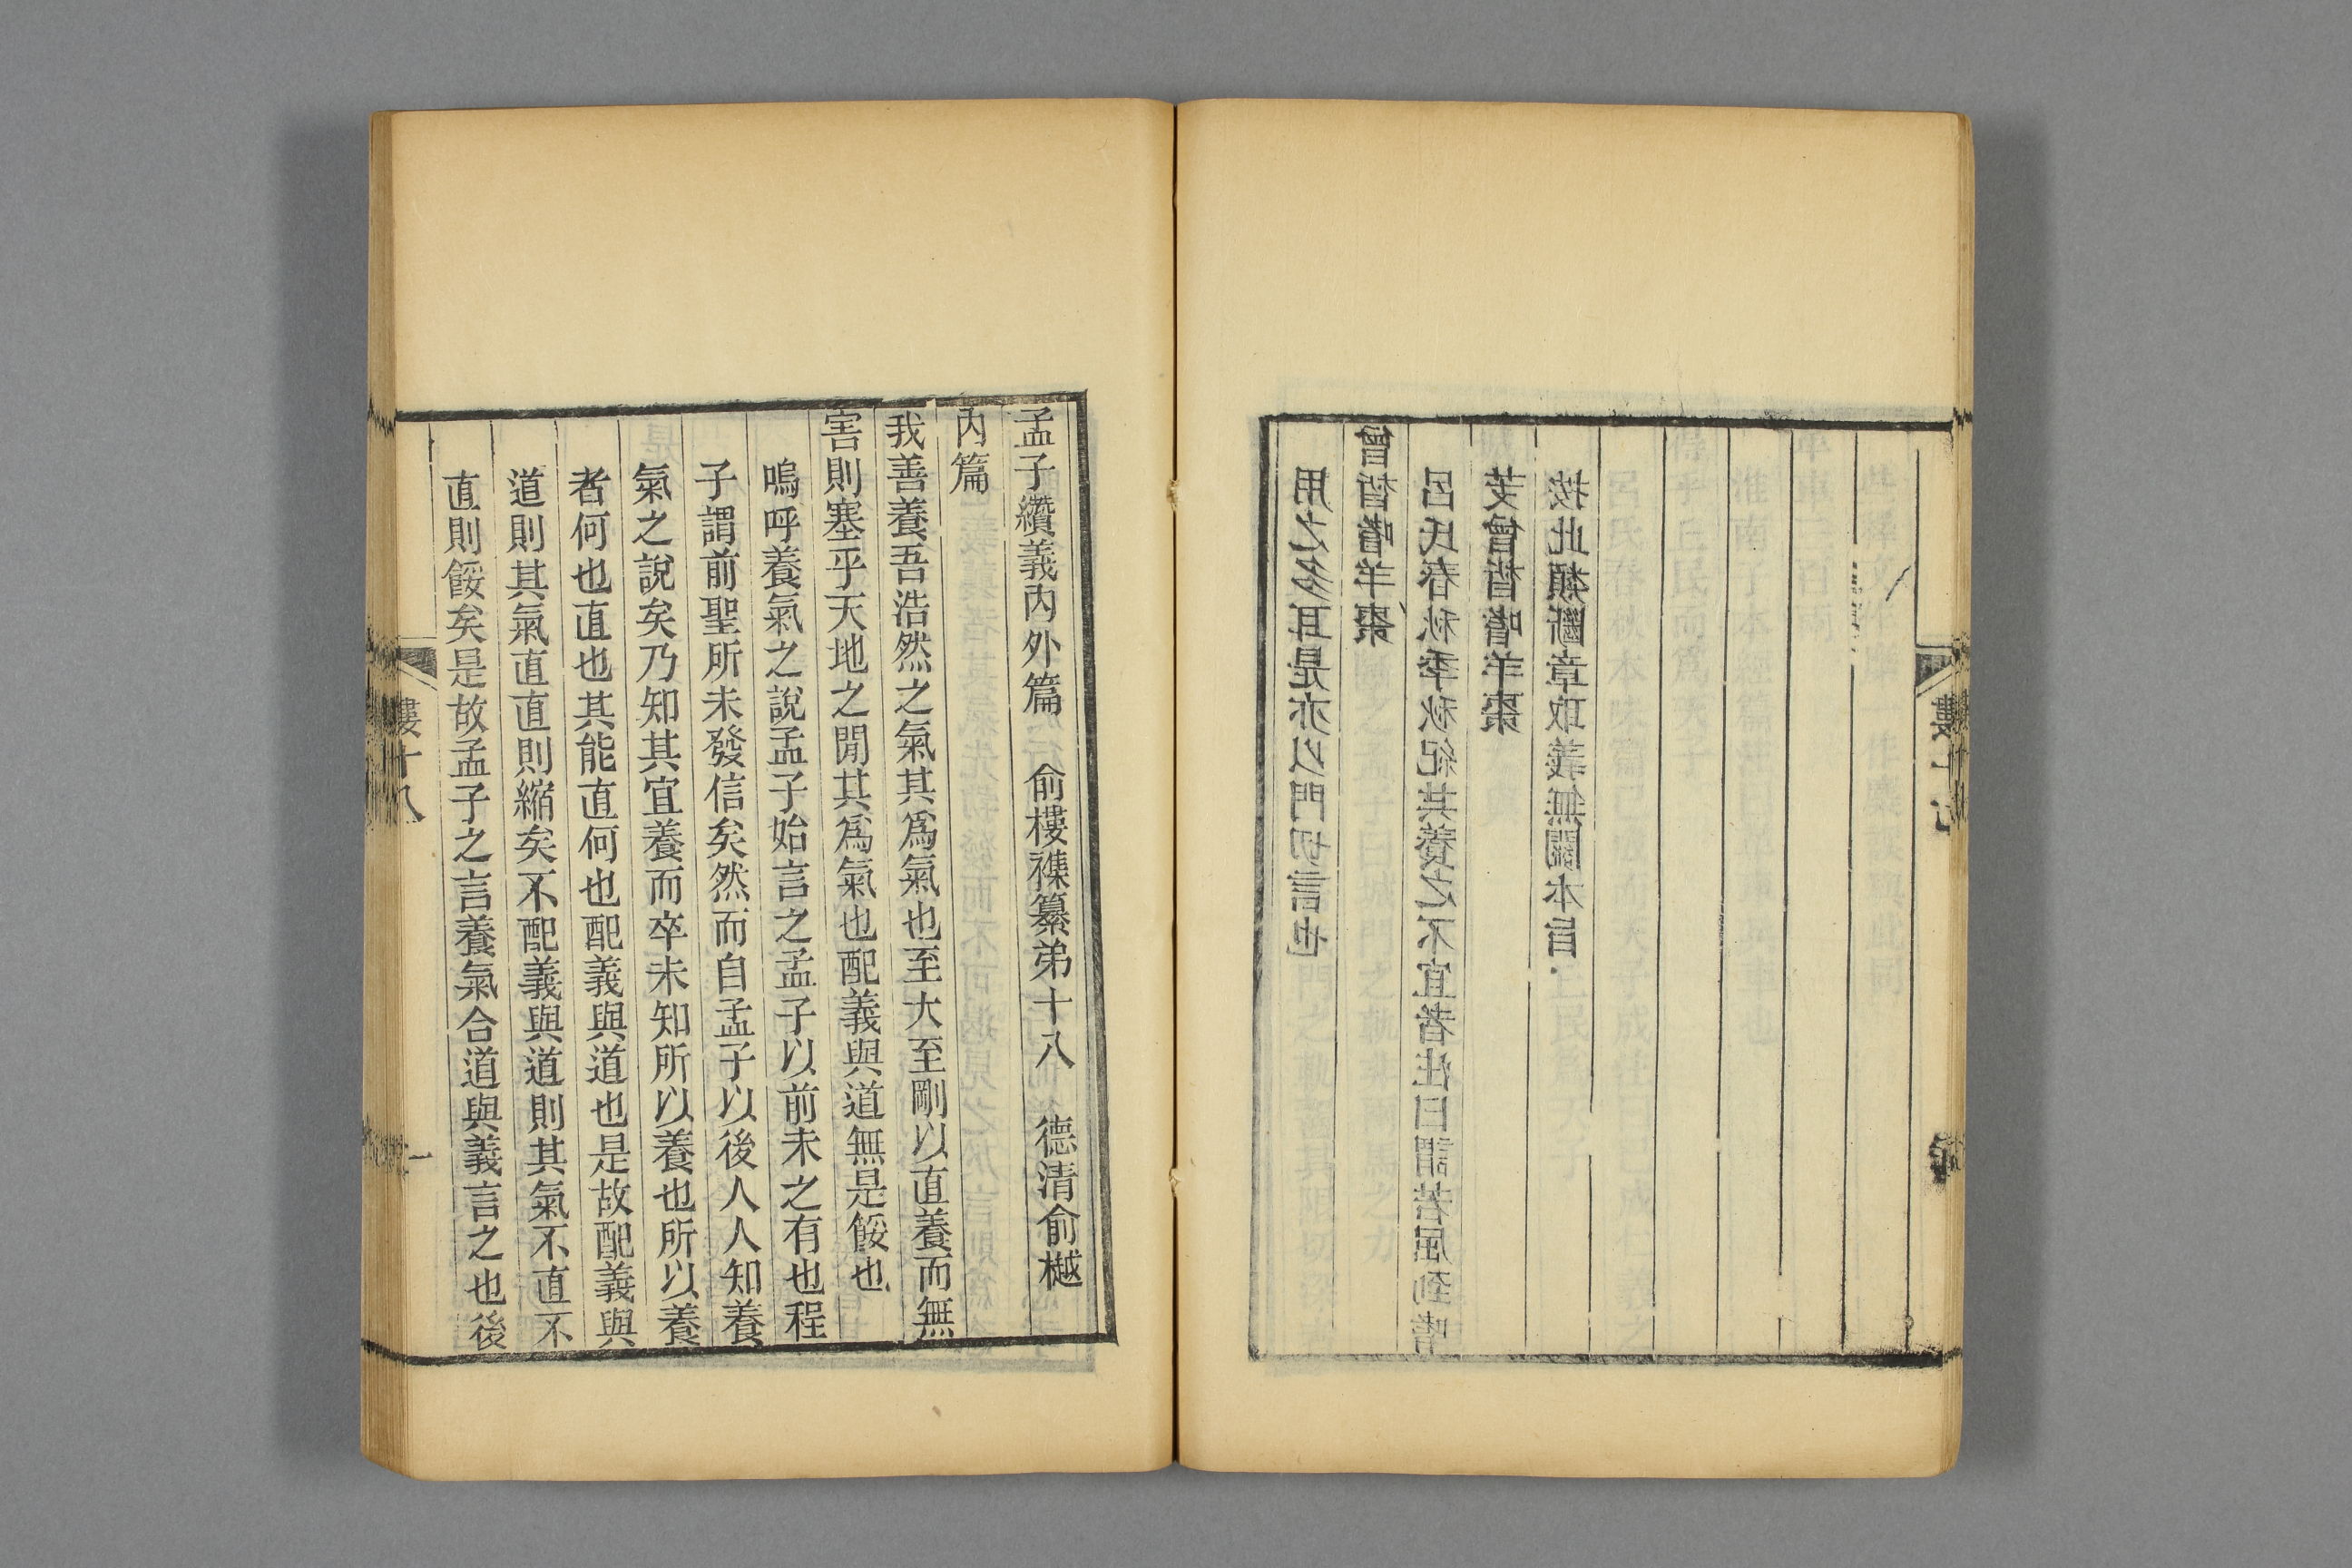 用之多耳是亦以門切言也
曾晳嗜羊棗
呂氏春秋季秋紀其養之不宜者注曰謂若屈到嗜
芰曾晳嗜羊棗
按此類斷章取義無關本旨
孟子纘義內外篇 俞樓襍纂弟十八 德清俞樾
內篇
我善養吾浩然之氣其為氣也至大至剛以直養而無
害則塞乎天地之閒其為氣也配義與道無是餒也
嗚呼養氣之說孟子始言之孟子以前未之有也程
子謂前聖所未發信矣然而自孟子以後人人知養
氣之說矣乃知其宜養而卒未知所以養也所以養
者何也直也其能直何也配義與道也是故配義與
道則其氣直直則縮矣不配義與道則其氣不直不
直則餒矣是故孟子之言養氣合道與義言之也後
樓十八
一